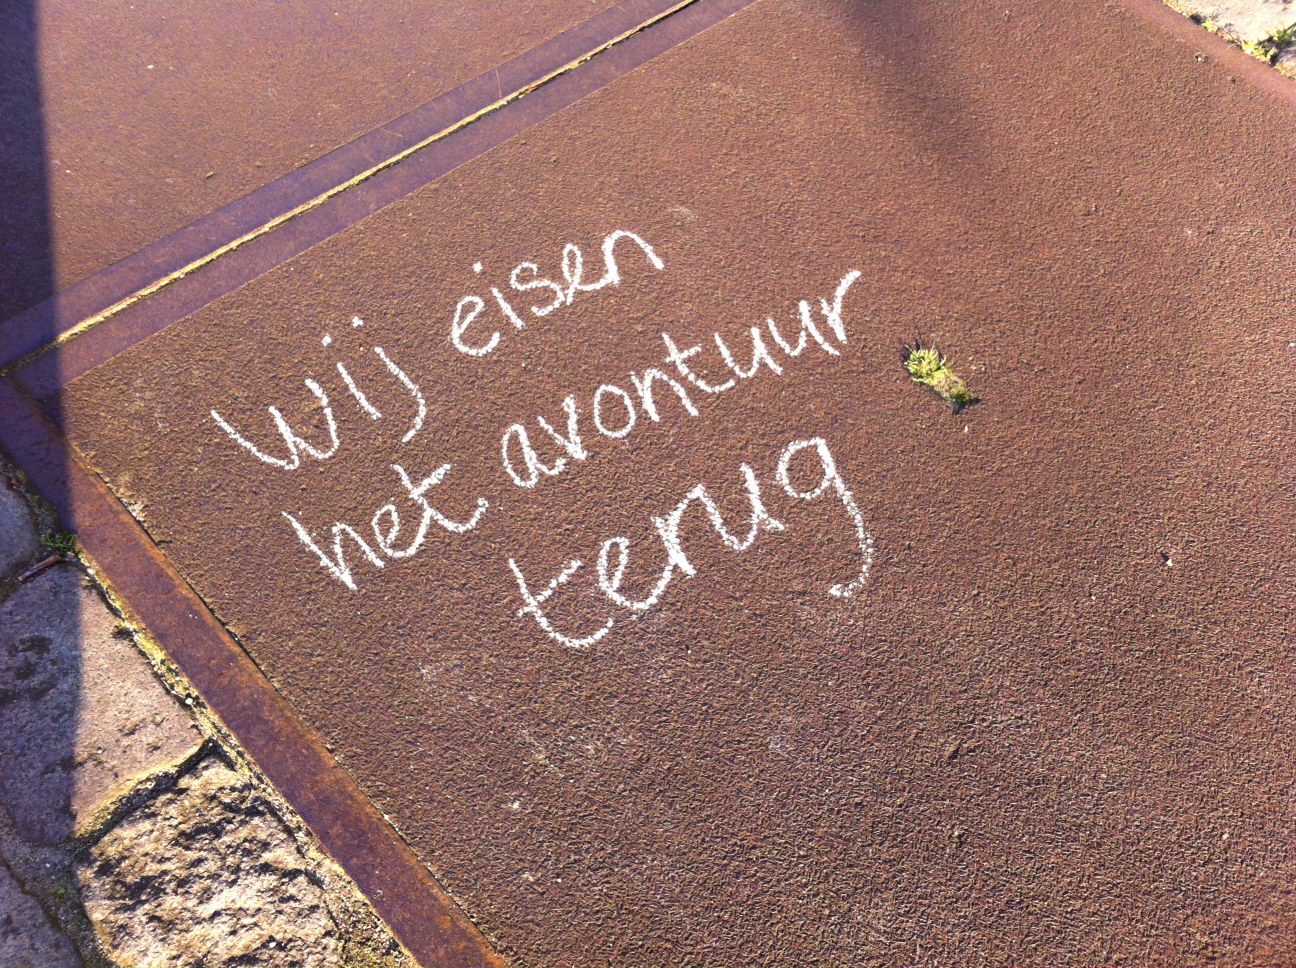 wij eisen
het avontuur
terug